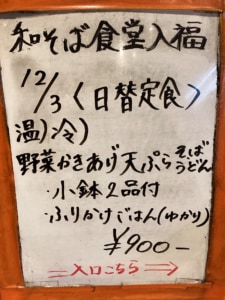 和そば食堂入福
12/3〈日替定食〉
温)冷)
野菜かきあげ天ぷらそばうどん
・小鉢2品付
・ふりかけごはん(ゆかり)
¥900-
入口こちら→